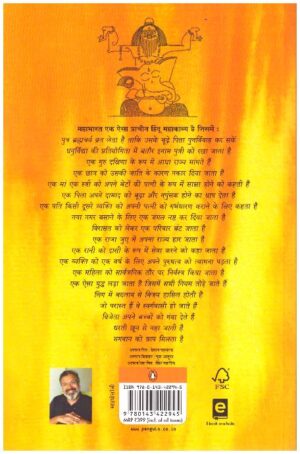 महाभारत एक ऐसा प्राचीन हिंदू महाकाव्य है जिसमें :
पुत्र ब्रह्मचर्य व्रत लेता है ताकि उसके बूढ़े पिता पुनर्विवाह कर सकें
धनुर्विद्या की प्रतियोगिता में बतौर इनाम पुत्री को रखा जाता है
एक गुरु दक्षिणा के रूप में आधा राज्य मांगते हैं
एक छात्र को उसकी जाति के कारण नकार दिया जाता है
एक मां एक स्त्री को अपने बेटों की पत्नी के रूप में साझा होने को कहती है
एक पिता अपने दामाद को बूढ़ा और नपुंसक होने का शाप देता है
एक पति किसी दूसरे व्यक्ति को अपनी पत्नी को गर्भधारण कराने के लिए कहता है
नया नगर बसाने के लिए एक जंगल नष्ट कर दिया जाता है
विरासत को लेकर एक परिवार बंट जाता है
एक राजा जुए में अपना राज्य हार जाता है
एक रानी को दासी के रूप में सेवा करने को कहा जाता है
एक व्यक्ति को एक वर्ष के लिए अपने पुरुषत्व को त्यागना पड़ता है
एक महिला को सार्वजनिक तौर पर निर्वस्त्र किया जाता है
एक ऐसा युद्ध लड़ा जाता है जिसमें सभी नियम तोड़े जाते हैं
लिंग में बदलाव से विजय हासिल होती है
जो परास्त हैं वे स्वर्गवासी हो जाते हैं
विजेता अपने बच्चों को गंवा देते हैं
धरती खून से नहा जाती है
भगवान को शाप मिलता है
ISBN 978-0-143-42294-5
9 780143 422945
MRP ₹399 (incl. of all taxes)
www.penguin.co.in
FSC
e
Ebook available